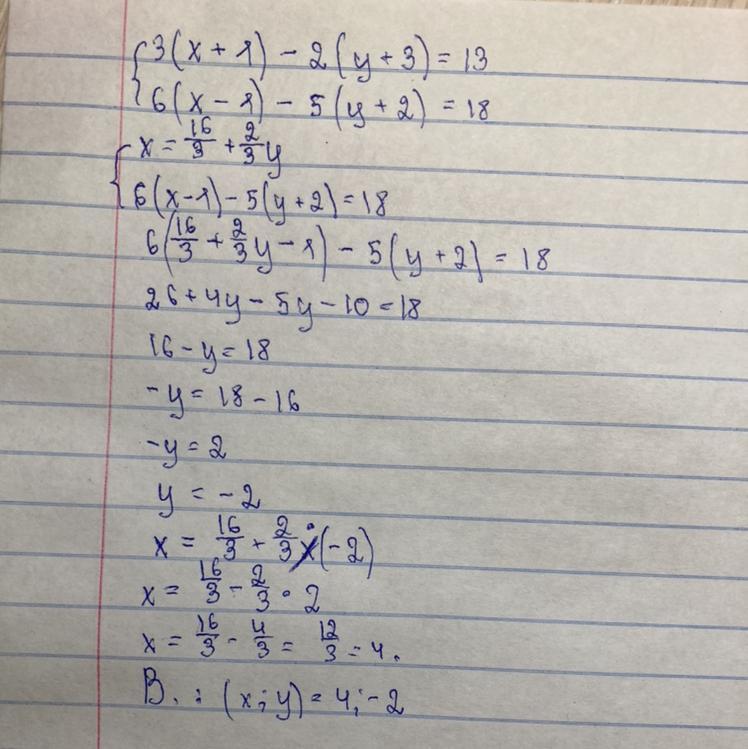 {3(x+1)-2(y+3)=13
{6(x-1)-5(y+2)=18
{x=16/3+2/3y
{6(x-1)-5(y+2)=18
6(16/3+2/3y-1)-5(y+2)=18
26+4y-5y-10=18
16-y=18
-y=18-16
-y=2
y=-2
x=16/3+2/3·(-2)
x=16/3-2/3·2
x=16/3-4/3=12/3=4.
В.:(x;y)=4;-2